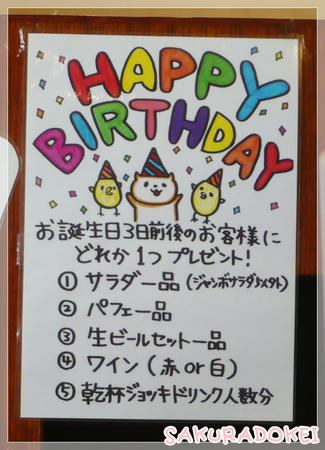 HAPPY
BIRTHDAY
お誕生日3日前後のお客様に
どれか1つプレゼント!
① サラダ一品(ジャンボサラダ以外)
② パフェ一品
③ 生ビールセット一品
④ ワイン(赤or白)
⑤ 乾杯ジョッキドリンク人数分
SAKURADOKEI